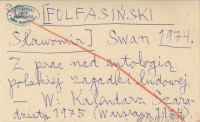 [FOLFASIŃSKI
Sławomir] Swan 1974.
Z prac nad antologią
polskiej zagadki ludowej.
— W: Kalendarz Szara-
dzisty 1975 (Warszawa 1974)